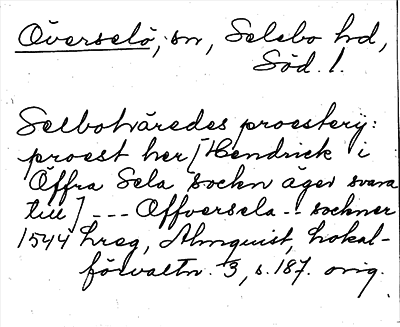 Överselö, sn, Selebo hd,
Söd. l.
Selbohäredes proestery:
proest her [Hendrick i
Öffra Sela sockn äger svara
till] --- Offversela -- sockner
1544 hreg, Almquist, Lokal-
förvaltn. 3, s. 187. orig.